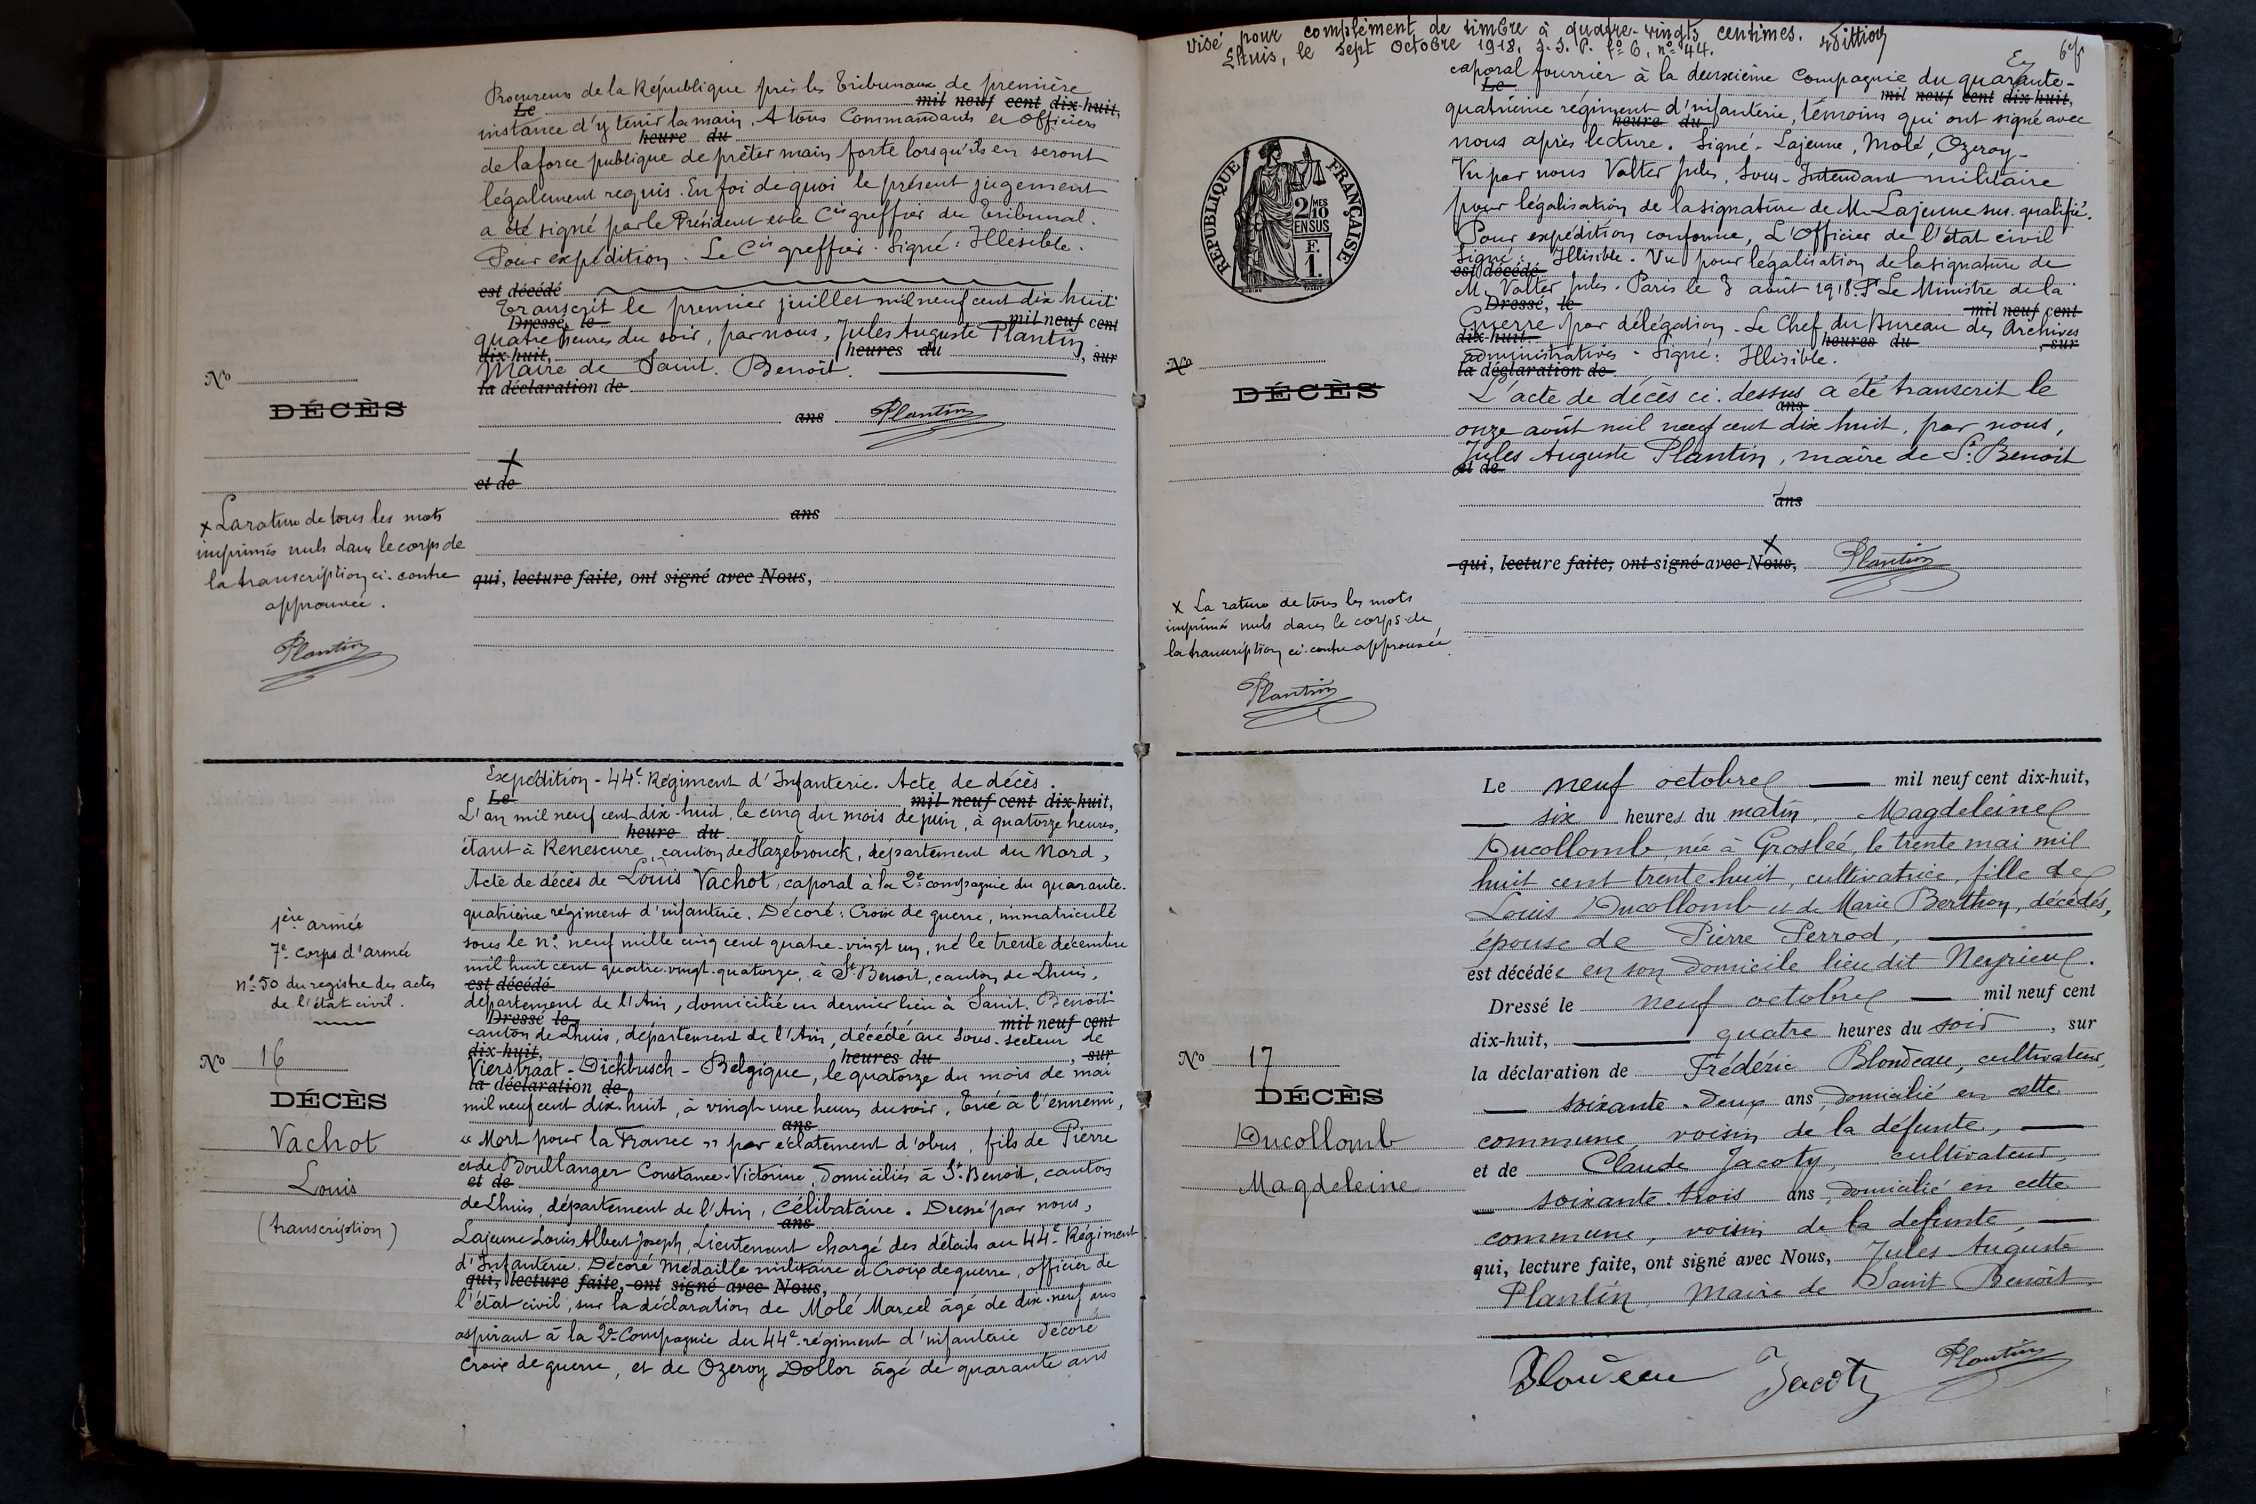 Procureurs de la République près les Tribunaux de première
Le mil neuf cent dix-huit,
instance d'y tenir la main. A tous Commandants et Officiers
heure du
de la force publique de prêter main forte lorsqu'ils en seront
légalement requis. En foi de quoi le présent jugement
a été signé par le Président et le Cis greffier du Tribunal.
Pour expédition. Le Cis greffier. Signé: Illisible.
est décédé
Transcrit le premier juillet mil neuf cent dix huit
Dressé, le mil neuf cent
quatre heures du soir, par nous, Jules Auguste Plantin
dix-huit, heures du , sur
Maire de Saint. Benoît.
la déclaration de
ans Plantin
No
DÉCÈS
X
et de
ans
x La rature de tous les mots
imprimés nuls dans le corps de
la transcription ci-contre
approuvée.
Plantin
qui, lecture faite, ont signé avec Nous,
Expédition - 44e Régiment d'Infanterie. Acte de décès.
Le mil neuf cent dix-huit,
L'an mil neuf cent dix-huit, le cinq du mois de juin, à quatorze heures,
heure du
étant à Renescure, canton de Hazebrouck, departement du Nord,
Acte de décès de Louis Vachot, caporal à la 2e compagnie du quarante-
quatrième régiment d'infanterie. Décoré: Croix de guerre, immatriculé
sous le no neuf mille cinq cent quatre-vingt un, né le trente décembre
mil huit cent quatre-vingt-quatorze, à St Benoit, canton de Lhuis,
est décédé
département de l'Ain, domicilié en dernier lieu à Saint. Benoit
Dressé le mil neuf cent
canton de Lhuis, département de l'Ain, décédé au sous-secteur de
dix-huit, heures du , sur
Vierstraat - Dickbusch - Belgique, le quatorze du mois de mai
la déclaration de
mil neuf cent dix-huit, à vingt-une heures du soir, Tué à l'ennemi,
ans
"Mort pour la France" par éclatement d'obus, fils de Pierre
et de Boullanger Constance-Victorine, domiciliés à St Benoit, canton
et de
de Lhuis, département de l'Ain, célibataire. Dressé par nous,
ans
Lajeune Louis Albert Joseph, Lieutenant chargé des détails au 44e Régiment
d'Infanterie. Décoré Médaille militaire et Croix de guerre, officier de
qui, lecture faite, ont signé avec Nous,
l'état civil, sur la déclaration de Molé Marcel âgé de dix-neuf ans
aspirant à la 2e Compagnie du 44e régiment d'infanterie décoré
Croix de guerre, et de Ozeroy Dollor âgé de quarante ans
1ère armée
7e corps d'armée
no 50 du registre des actes
de l'état civil.
No 16
DÉCÈS
Vachot
Louis
(transcription)
Visé pour complément de timbre à quatre-vingts centimes.
Lhuis, le sept Octobre 1918, fo 6, no 44.
caporal fourrier à la deuxième Compagnie du quarante-
Le mil neuf cent dix-huit,
quatrième régiment d'infanterie, témoins qui ont signé avec
heure du
nous après lecture. Signé - Lajeune, Molé, Ozeroy -
Vu par nous Valter Jules, Sous-Intendant militaire
pour légalisation de la signature de M. Lajeune sus-qualifié.
Pour expédition conforme, L'Officier de l'état civil
Signé: Illisible. Vu pour légalisation de la signature de
est décédé
M. Valter Jules. Paris le 3 août 1918. Pr Le Ministre de la
Dressé, le mil neuf cent
Guerre par délégation. Le Chef du Bureau des Archives
dix-huit, heures du , sur
administratives - Signé: Illisible.
la déclaration de
L'acte de décès ci-dessus a été transcrit le
ans
onze août mil neuf cent dix huit, par nous,
Jules Auguste Plantin, maire de St Benoit
et de
ans
X
qui, lecture faite, ont signé avec Nous, Plantin
REPUBLIQUE FRANÇAISE
2/10MES
EN SUS
F.
1.
No
DÉCÈS
x La rature de tous les mots
imprimés nuls dans le corps de
la transcription ci-contre approuvée
Plantin
Le neuf octobre mil neuf cent dix-huit,
six heures du matin, Magdeleine
Ducollomb, née à Groslée, le trente mai mil
huit cent trente-huit, cultivatrice, fille de
Louis Ducollomb et de Marie Berthon, décédés,
épouse de Pierre Perrod,
est décédée en son domicile lieu dit Neyrieu.
Dressé le neuf octobre mil neuf cent
dix-huit, quatre heures du soir, sur
la déclaration de Frédéric Blondeau, cultivateur,
soixante-deux ans, domicilié en cette
commune, voisin de la défunte,
et de Claude Jacoty, cultivateur,
soixante-trois ans, domicilié en cette
commune, voisin de la défunte,
qui, lecture faite, ont signé avec Nous, Jules Auguste
Plantin, Maire de Saint Benoît.
No 17
DÉCÈS
Ducollomb
Magdeleine
Blondeau Jacoty Plantin